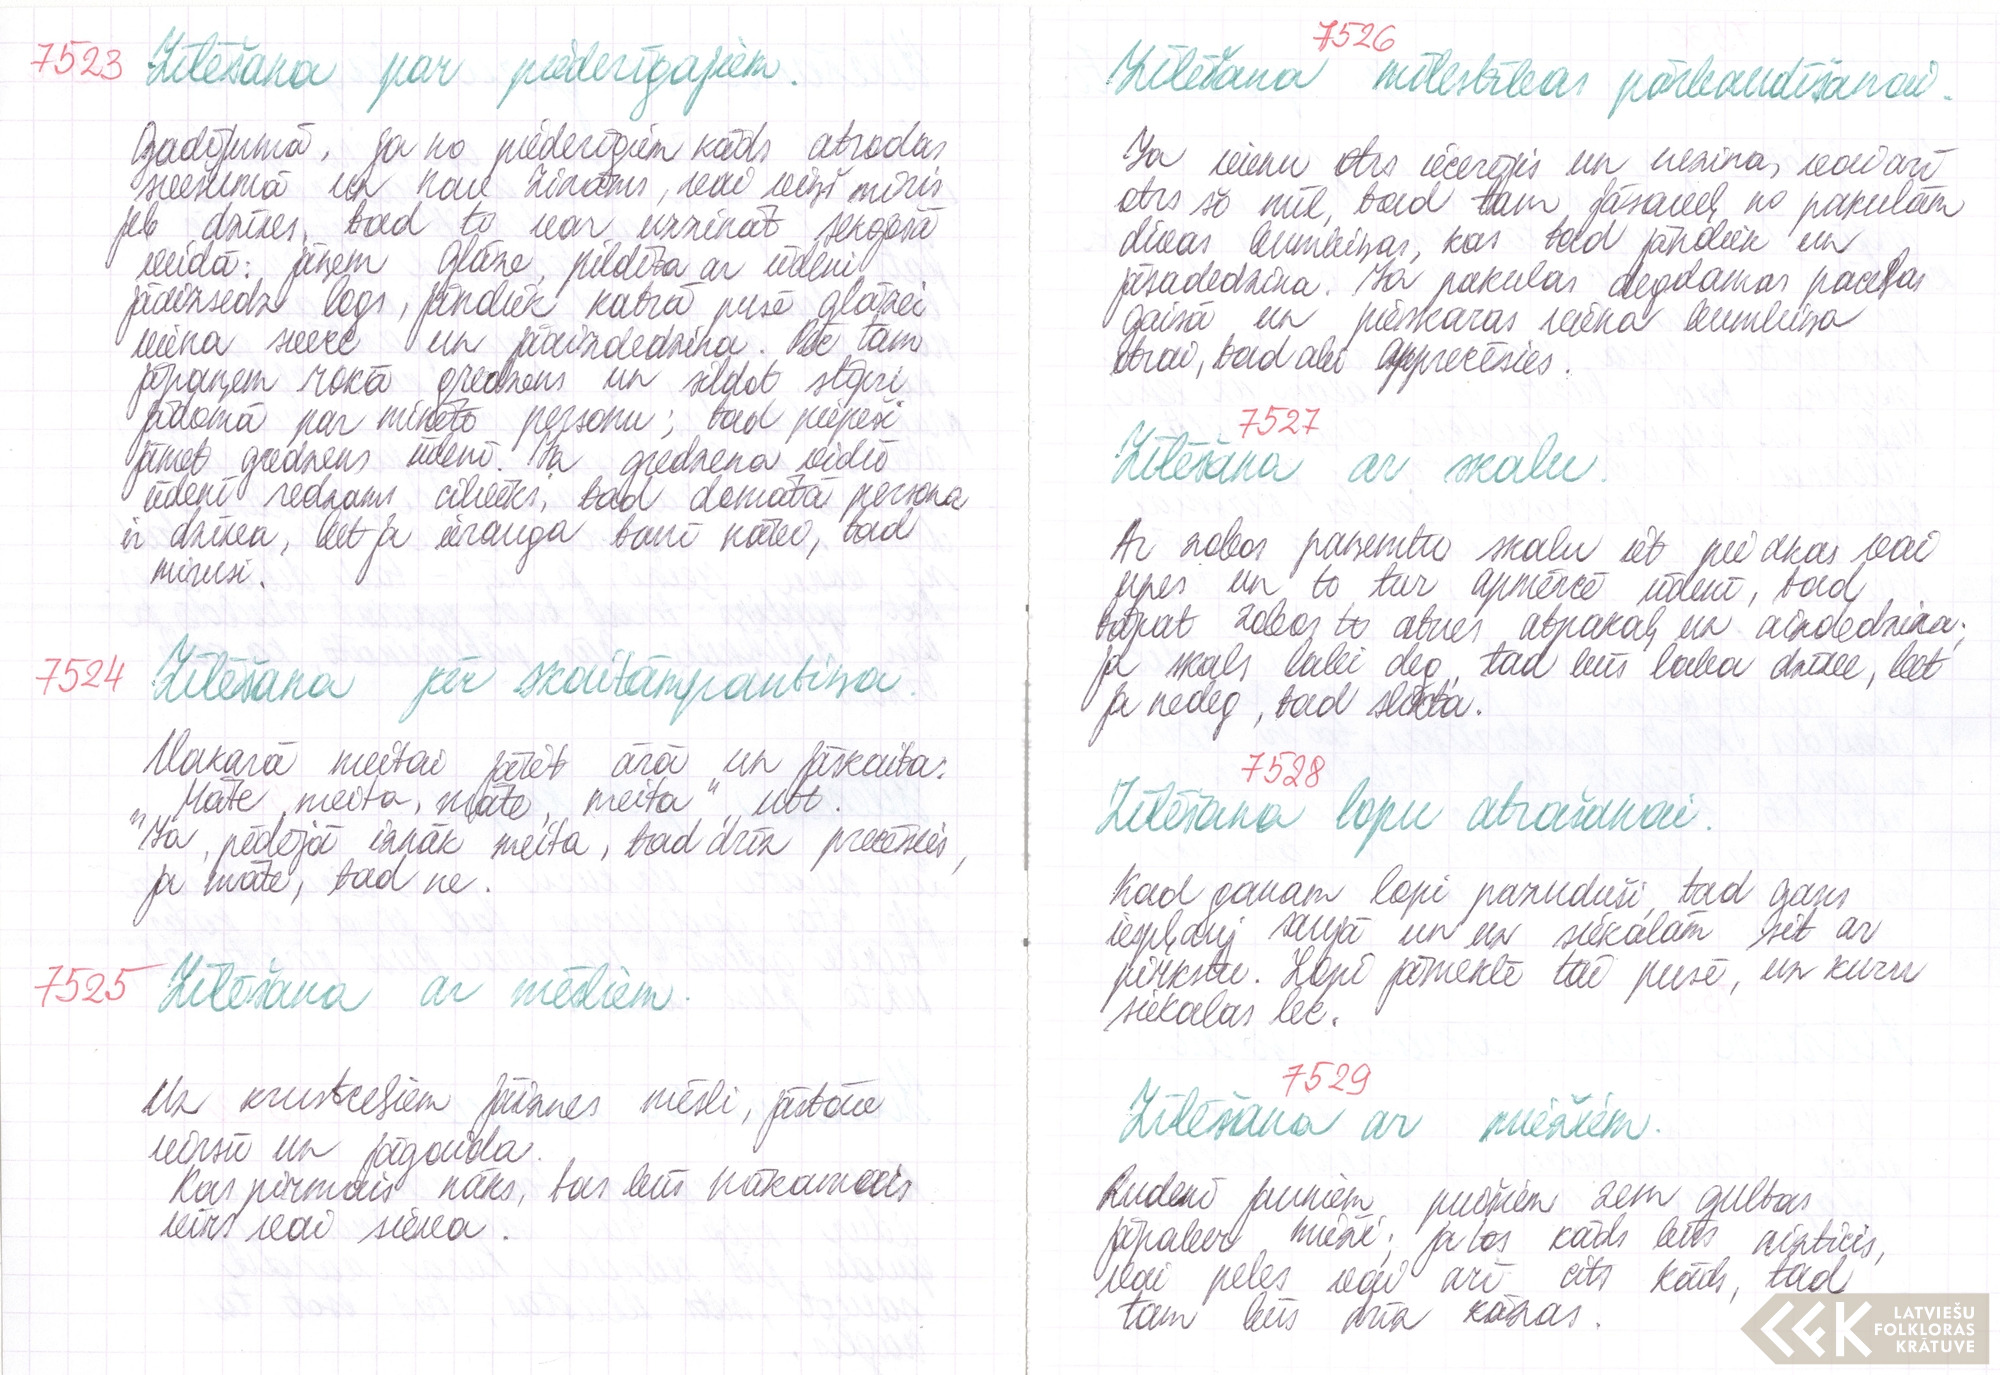 7523 Zīlēšana par piederīgajiem.
Gadījumā, ja no piederīgiem kāds atrodas
svešumā un nav zināms, vai viņš miris
jeb dzīvs, tad to var uzzināt sekojošā
veidā: jāņem glāze, pildīta ar ūdeni
jāaizsedz logs, jānoliek katrā pusē glāzei
viena svece un jāaizdedzina. Pēc tam
jāpaņem rokā gredzens un sildot stipri
jādomā par minēto personu; tad piepeši
jāmet gredzens ūdenī. Ja gredzena vidū
ūdenī redzams cilvēks, tad domātā persona
ir dzīva, bet ja ierauga tani zārku, tad
mirusi.
7524 Zīlēšana pēc skaitāmpantiņa.
Vakarā meitai jāiet ārā un jāskaita:
„Māte, meita, māte, meita", utt.
"Ja pēdējā iznāk meita, tad drīz precēsies,
ja māte, tad ne.
7525 Zīlēšana ar mēsliem.
Uz krustceļiem jāiznes mēsli, jāstāv
virsū un jāgaida.
Kas pirmais nāks, tas būs nākamais
vīrs vai sieva.
7526
Zīlēšana mīlestības pārbaudīšanai.
Ja vienu otrs iecerējis un nezina, vai arī
otrs šo mīl, tad tam jāsaveļ no pakulām
divas bumbiņas, kas tad jānoliek un
jāsadedzina. Ja pakulas degdamas paceļas
gaisā un pieskaras viena bumbiņa
otrai, tad abi apprecēsies.
7527
Zīlēšana ar skalu.
Ar zobos paņemtu skalu iet pie akas vai
upes un to tur apmērcē ūdenī, tad
tāpat zobos to atnes atpakaļ un aizdedzina;
ja skals labi deg, tad būs laba dzīve, bet
ja nedeg, tad slikta.
7528
Zīlēšana lopu atrašanai.
Kad ganam lopi pazuduši, tad gans
iespļauj saujā un uz siekalām sit ar
pirkstu. Lopi jāmeklē tai pusē, uz kuru
siekalas lec.
7529
Zīlēšana ar miežiem.
Rudenī jauniem puišiem zem gultas
jāpaber mieži; ja tos kāds būs aizticis,
vai peles vai arī cits kāds, tad
tam būs drīz kāzas.
LATVIEŠU
FOLKLORAS
KRĀTUVE